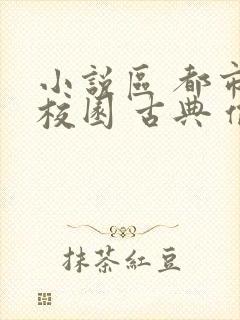 小說區 都市
校園 古典
抹茶紅豆